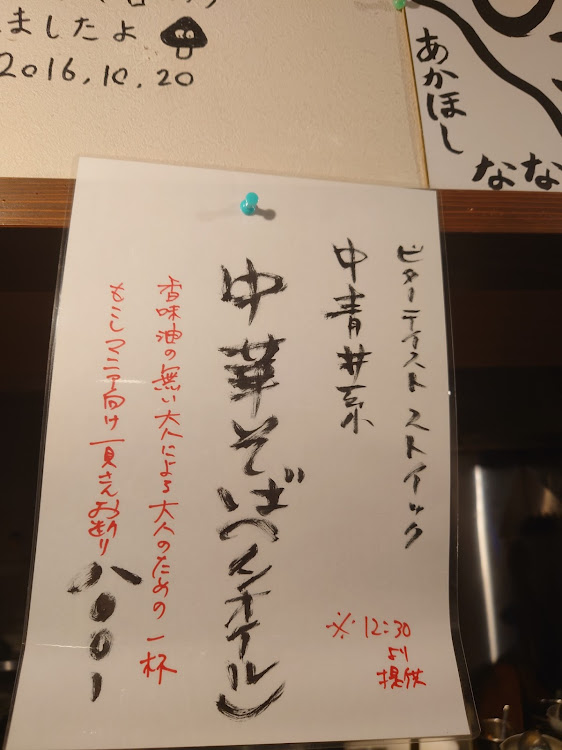 ましたよ
2016.10.20
あかほし
なな
ビターテイストストイック
中青井系
※12:30
より
提供
中華そば(ノンオイル)
香味油の無い大人による大人のための一杯
もこしマニア向け一見さんお断り
八〇〇-